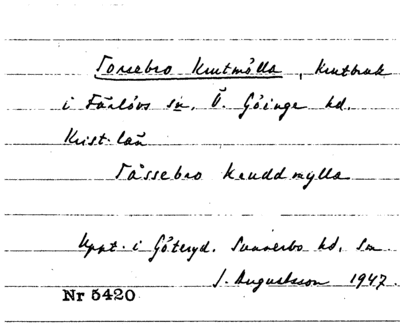 Torsebro Krutmölla, krutbruk
i Färlövs sn, Ö. Göinge hd.
Krist. län
Tåssebro Kruddmylla
Uppt. i Göteryd. Sunnerbo hd, Sm
J. Augustsson 1947.
Nr 5420